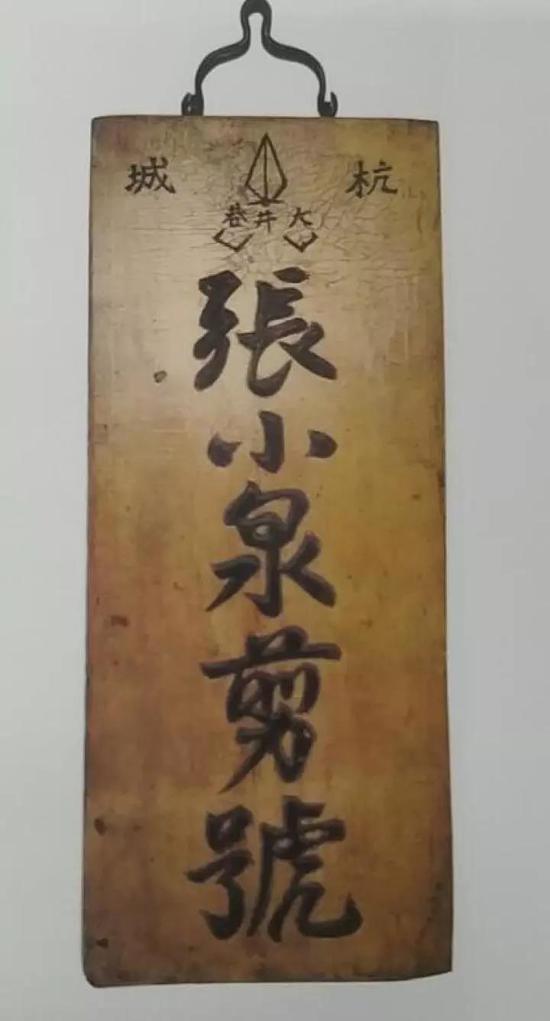 杭城
大井巷
張小泉剪號